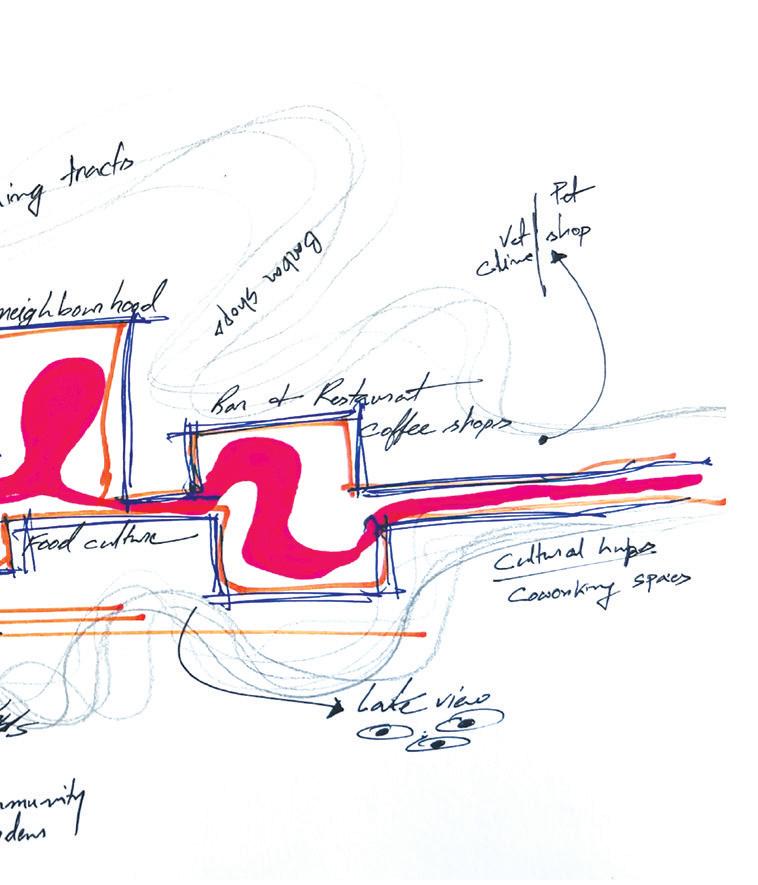 ing tracts
Pet
Vet shop
Barbar shops
neighbourhood
Bar & Restaurant
coffee shops
Food culture
Cultural hups
Coworking spaces
Lake view
mmunity
dens